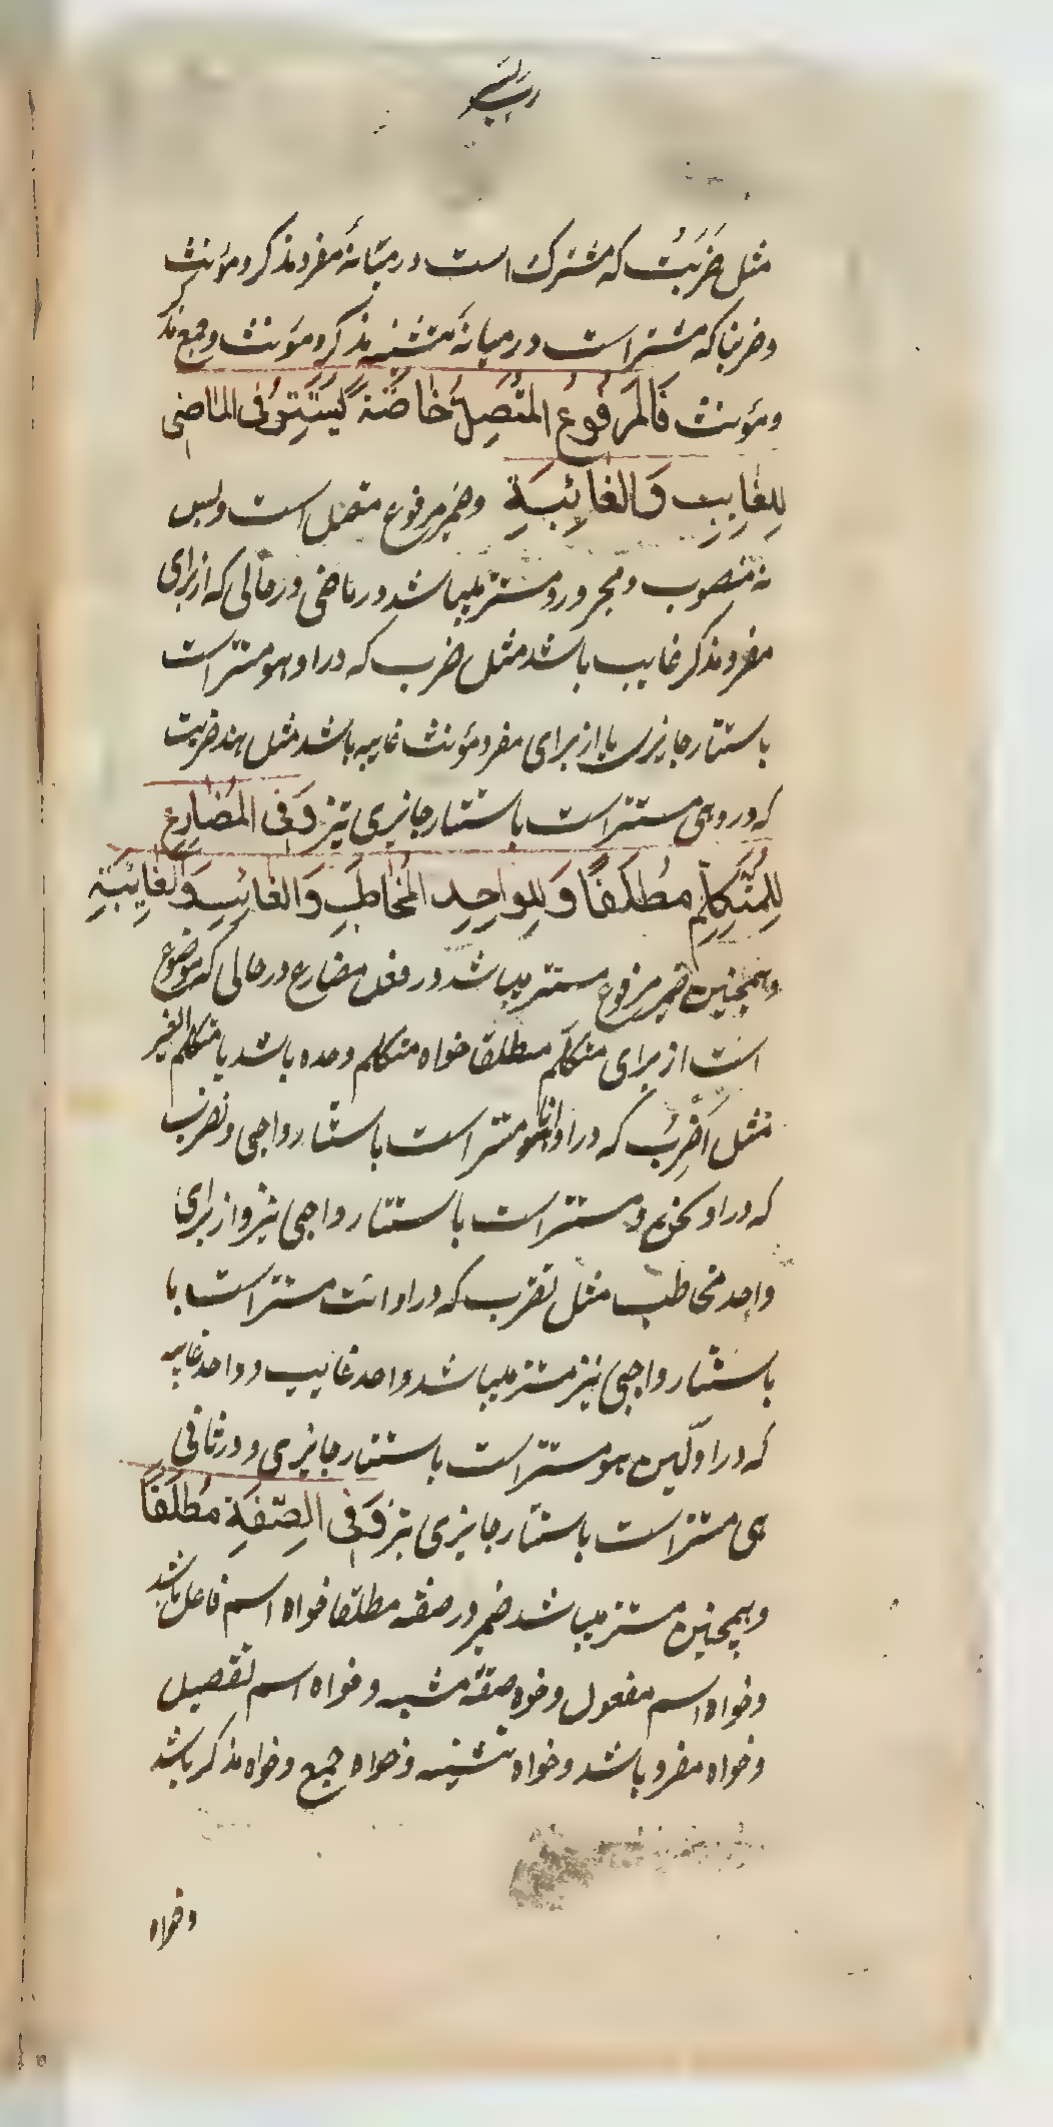 مثل ضَرَبَتُ که مشترک است درمیانهٔ مفرد مذکر و مؤنث
و ضربنا که مشتر است درمیانهٔ تثنیه مذکر و مؤنث و جمع مذکر
و مؤنث فَالمَرفُوعُ المُتَّصِلُ خاصَّةً یَستَتِرُ فی الماضی
لِلغایِبِ وَالغائِبَةِ و ضمیر مرفوع متصل است و بس
نه منصوب و مجرور و مستتر میباشد در ماضی در حالی که از برای
مفرد مذکر غایب باشد مثل ضرب که در او هو مستتر است
باستتار جایزی یا از برای مفرد مؤنث غایبه باشد مثل هند ضربت
که در وهی مستتر است باستتار جایزی نیز وَفی المُضارِعِ
لِلمُتَکَلِّمِ مُطلَقًا وَلِلواحِدِ المُخاطَبِ وَالغائِبِ وَالغائِبَةِ
و همچنین ضمیر مرفوع مستتر میباشد در فعل مضارع در حالی که موضوع
است از برای متکلّم مطلقا خواه متکلم وحده باشد یا متکلم الغیر
مثل اَضرِبُ که در او انا مستتر است باستتار واجبی و نضرب
که در او نحن مستتر است باستتار واجبی نیز و از برای
واحد مخاطب مثل تضرب که در او انت مستتر است با
باستتار واجبی نیز مستتر میباشد واحد غایب و واحد غایبه
که در اوّلین هو مستتر است باستتار جایزی و در ثانی
هی مستتر است باستتار جایزی نیز وَفی الصِّفَةِ مُطلَقًا
و همچنین مستتر میباشد ضمیر در صفة مطلقا خواه اسم فاعل باشد
و خواه اسم مفعول و خوه صفة مشبه و خواه اسم تفضیل
و خواه مفرد باشد و خواه تثنیه و خواه جمع و خواه مذکر باشد
و خواه